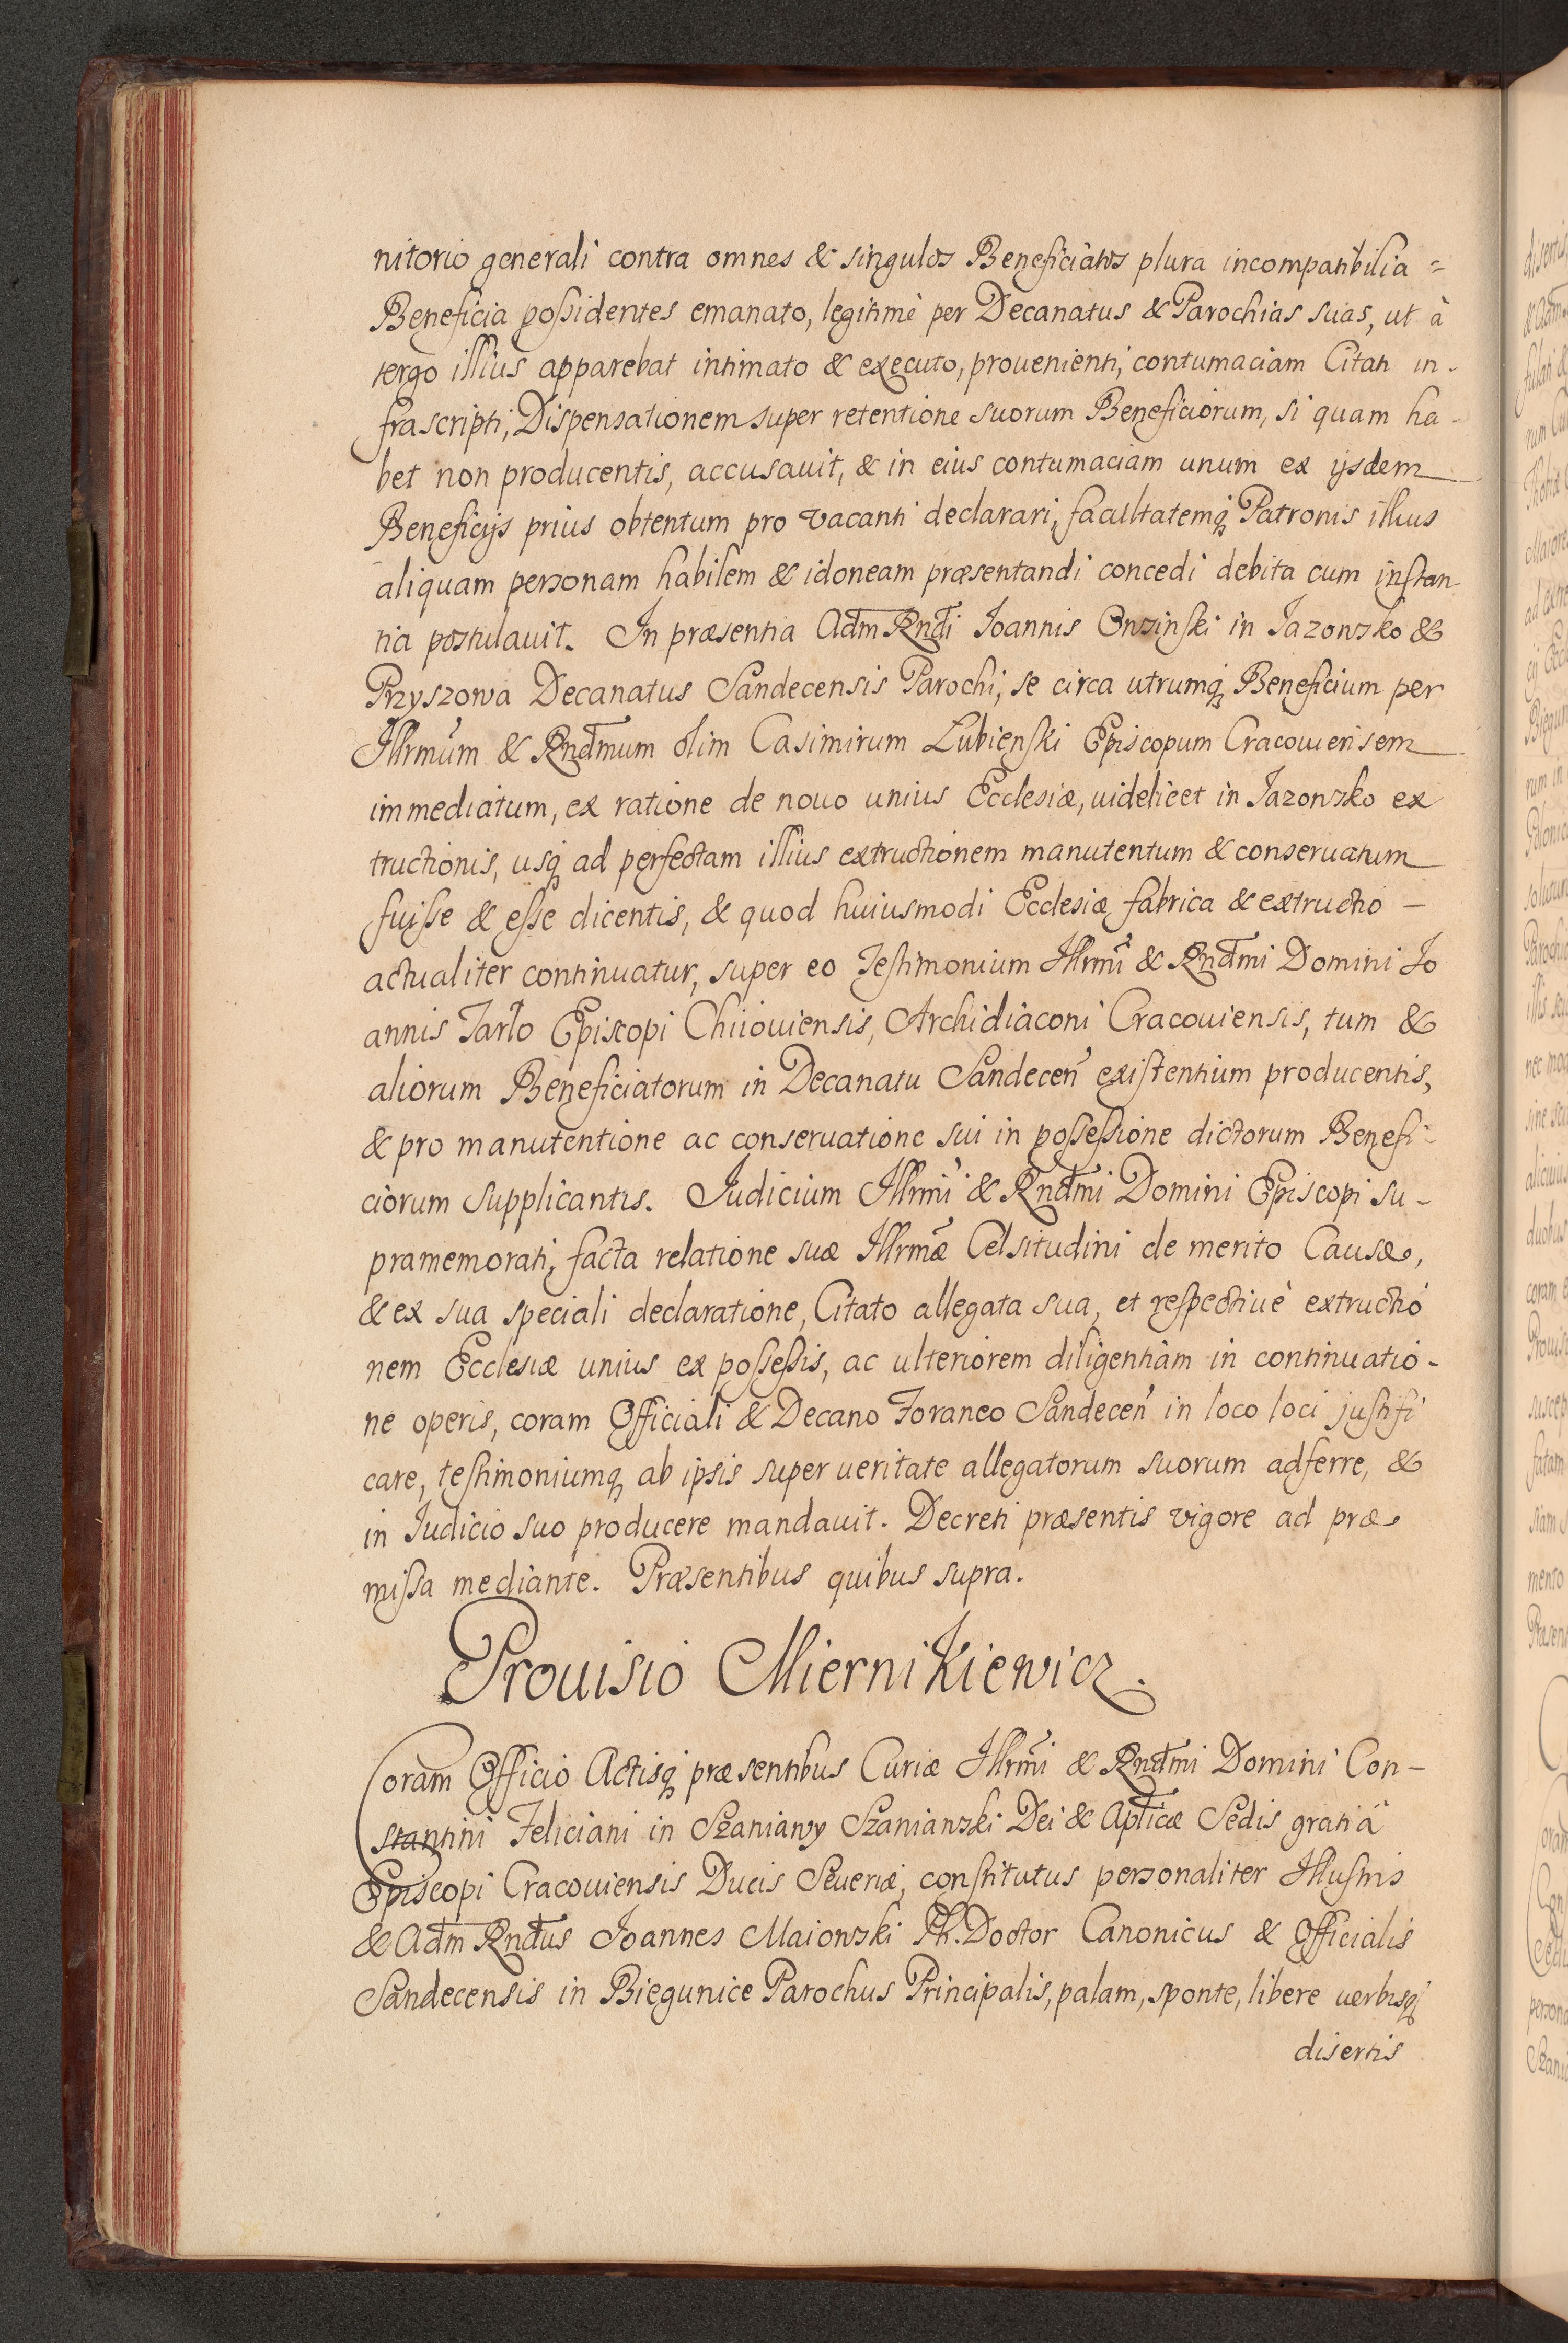 nitorio generali contra omnes & singulos Beneficiatos plura incompatibilia =
Beneficia possidentes emanato, legitimè per Decanatus & Parochias suas, ut à
tergo illius apparebat intimato & executo, prouenienti, contumaciam Citati in-
frascripti, Dispensationem super retentione suorum Beneficiorum, si quam ha-
bet non producentis, accusauit, & in eius contumaciam unum ex ijsdem
Beneficijs prius obtentum pro vacanti declarari, facultatemq Patronis illius
aliquam personam habilem & idoneam præsentandi concedi debita cum instan-
tia postulauit. In præsentia Adm Rndi Joannis Onsinski in Jazowsko &
Przyszowa Decanatus Sandecensis Parochi, se circa utrumq Beneficium per
Illrmum & Rndmum olim Casimirum Lubienski Episcopum Cracouiensem
immediatum, ex ratione de nouo unius Ecclesiæ, uidelicet in Jazowsko ex
tructionis, usq ad perfectam illius extructionem manutentum & conseruatum
fuisse & esse dicentis, & quod huiusmodi Ecclesiæ fabrica & extructio —
actualiter continuatur, super eo Testimonium Illrmi & Rndmi Domini Jo
annis Tarło Episcopi Chiiouiensis, Archidiaconi Cracouiensis, tum &
aliorum Beneficiatorum in Decanatu Sandecen existentium producentis,
& pro manutentione ac conseruatione sui in possessione dictorum Benefi-
ciorum supplicantis. Judicium Illrmi & Rndmi Domini Episcopi su-
pramemorati, facta relatione suæ Illrmæ Celsitudini de merito Causæ,
& ex sua speciali declaratione, Citato allegata sua, et respectiuè extructio
nem Ecclesiæ unius ex possessis, ac ulteriorem diligentiam in continuatio-
ne operis, coram Officiali & Decano Foraneo Sandecen in loco loci justifi
care, testimoniumq ab ipsis super ueritate allegatorum suorum adferre, &
in Judicio suo producere mandauit. Decreti præsentis vigore ad præ-
missa mediante. Præsentibus quibus supra.
Prouisio Miernikiewicz.
Coram Officio Actisq præsentibus Curiæ Illrmi & Rndmi Domini Con-
stantini Feliciani in Szaniawy Szaniawski Dei & Aplicæ Sedis gratiâ
Episcopi Cracouiensis Ducis Seueriæ, constitutus personaliter Illustris
& Adm Rndus Joannes Maiowski Ph. Doctor Canonicus & Officialis
Sandecensis in Biegunice Parochus Principalis, palam, sponte, libere uerbisq
disertis